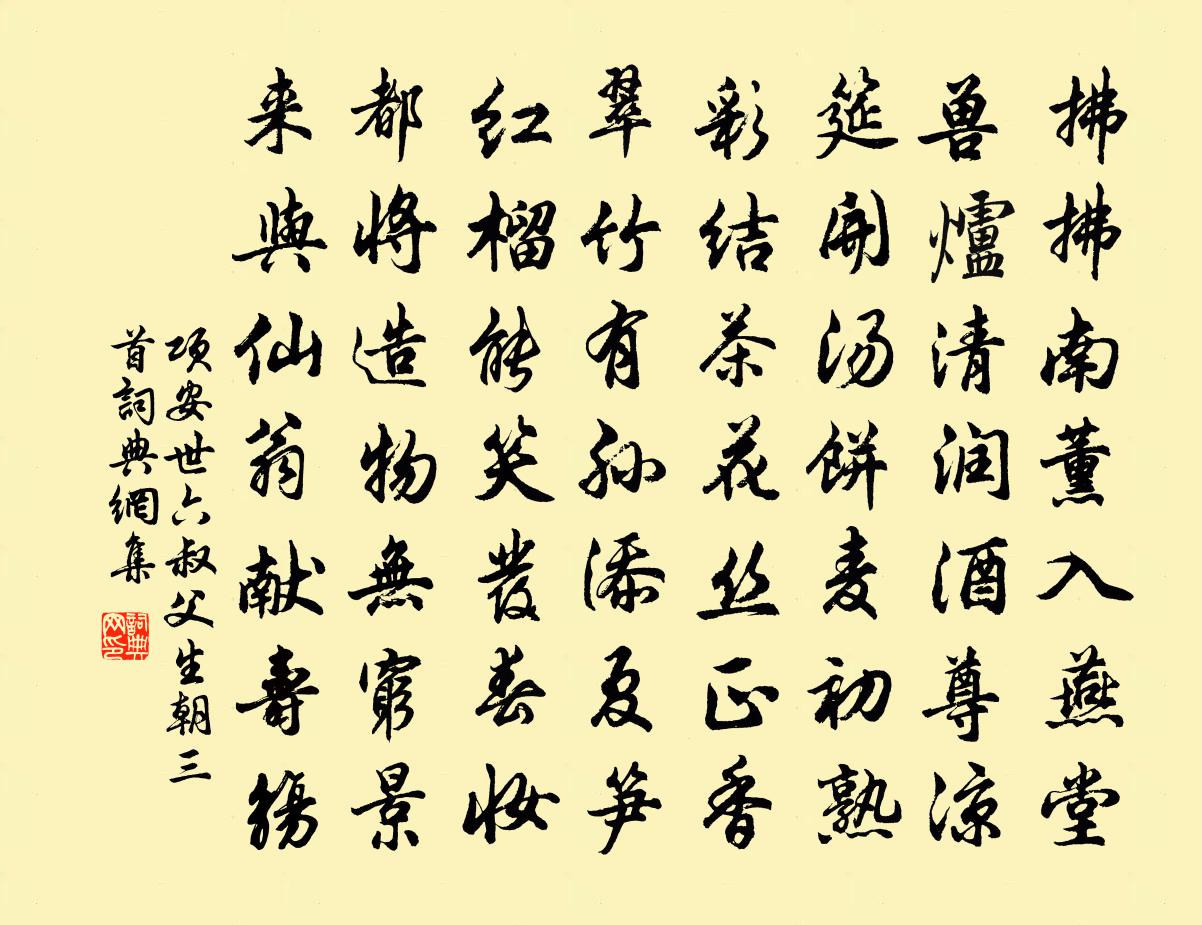 拂拂南薰入燕堂
兽爐清润酒尊凉
筵開汤餅麦初熟
彩结茶花丝正香
翠竹有孙添夏笋
红榴能笑發春妆
都将造物無窮景
来與仙翁献壽觞
项安世六叔父生朝三
首詞典網集
詞典
网印